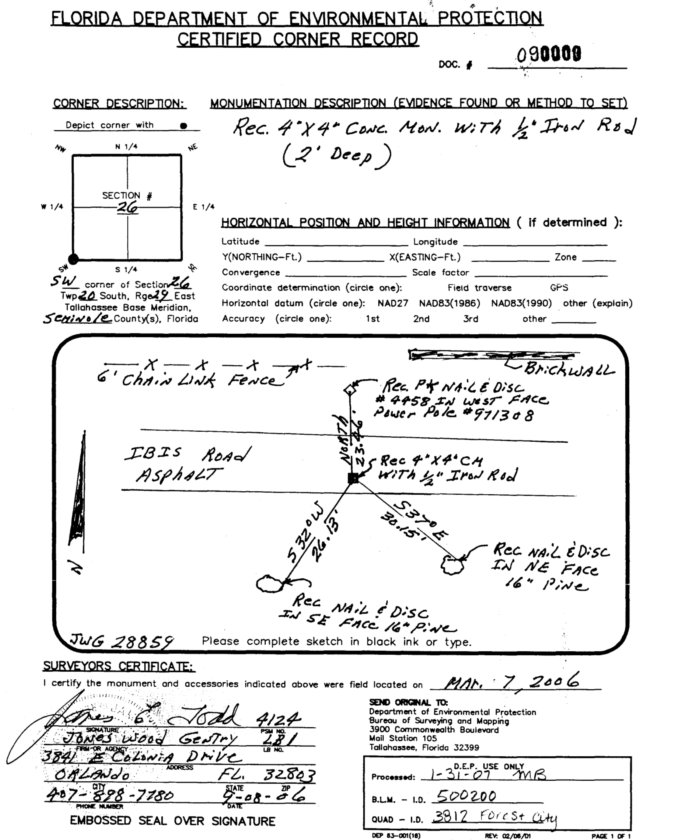 FLORIDA DEPARTMENT OF ENVIRONMENTAL PROTECTION
CERTIFIED CORNER RECORD
DOC. # 090000
CORNER DESCRIPTION:
Depict corner with ●
NW N 1/4 NE
SECTION #
26
W 1/4 E 1/4
SW S 1/4 SE
SW corner of Section 26
Twp 20 South, Rge 29 East
Tallahassee Base Meridian,
Seminole County(s), Florida
MONUMENTATION DESCRIPTION (EVIDENCE FOUND OR METHOD TO SET)
Rec. 4"X4" Conc. Mon. With 1/2" Iron Rod
(2' Deep)
HORIZONTAL POSITION AND HEIGHT INFORMATION ( if determined ):
Latitude Longitude
Y(NORTHING-Ft.) X(EASTING-Ft.) Zone
Convergence Scale factor
Coordinate determination (circle one): Field traverse GPS
Horizontal datum (circle one): NAD27 NAD83(1986) NAD83(1990) other (explain)
Accuracy (circle one): 1st 2nd 3rd other
X X X X
6' Chain Link Fence
BrickWALL
Rec. PK NAIL & DISC
# 4458 IN WEST FACE
Power Pole #971308
NORTH
23.46'
IBIS ROAD
ASPHALT
Rec 4"X4" CM
WITH 1/2" Iron Rod
S 32° W
26.13'
S37°E
30.15'
Rec NAIL & DISC
IN NE FACE
16" Pine
Rec NAIL & DISC
IN SE FACE 16" Pine
N
JWG 28859 Please complete sketch in black ink or type.
SURVEYORS CERTIFICATE:
I certify the monument and accessories indicated above were field located on MAR. 7, 2006
James E Todd 4124
SIGNATURE PSM NO.
JONES WOOD GENTRY LB1
FIRM OR AGENCY LB NO.
3841 E COLONIAL DRIVE
ADDRESS
ORLANDO FL. 32803
CITY STATE ZIP
407-898-7780 9-08-06
PHONE NUMBER DATE
EMBOSSED SEAL OVER SIGNATURE
SEND ORIGINAL TO:
Department of Environmental Protection
Bureau of Surveying and Mapping
3900 Commonwealth Boulevard
Mail Station 105
Tallahassee, Florida 32399
D.E.P. USE ONLY
Processed: 1-31-07 MB
B.L.M. - I.D. 500200
QUAD - I.D. 3812 Forest City
DEP 83-001(16) REV: 02/06/01 PAGE 1 OF 1